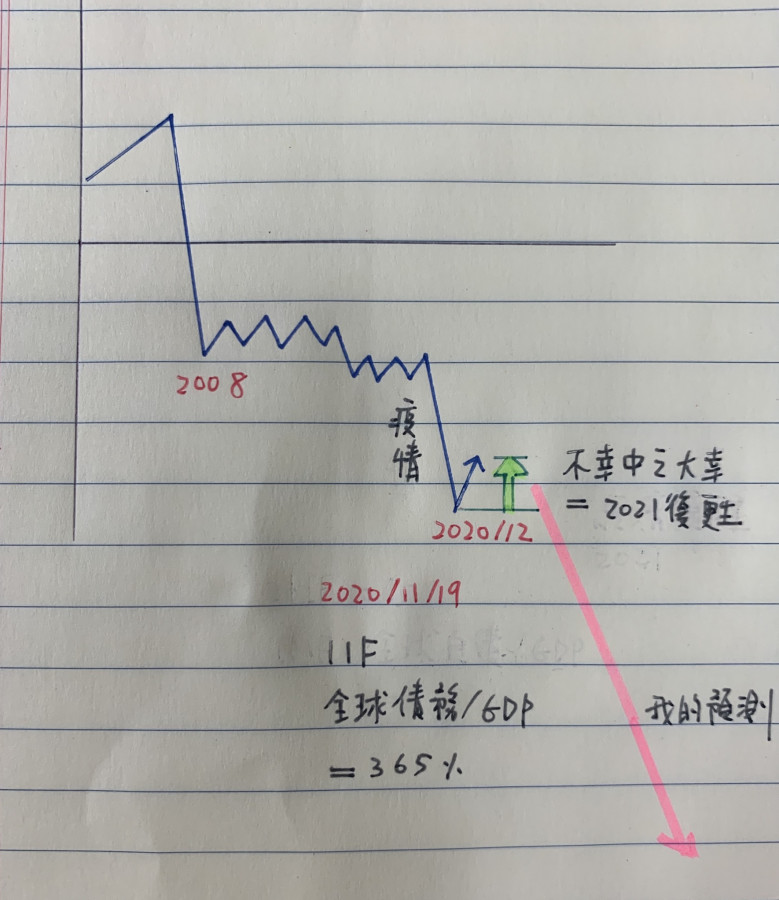 2008
疫
情
不幸中之大幸
= 2021後更生
2020/12
2020/11/19
IIF
全球債務/GDP
我的預測
= 365%